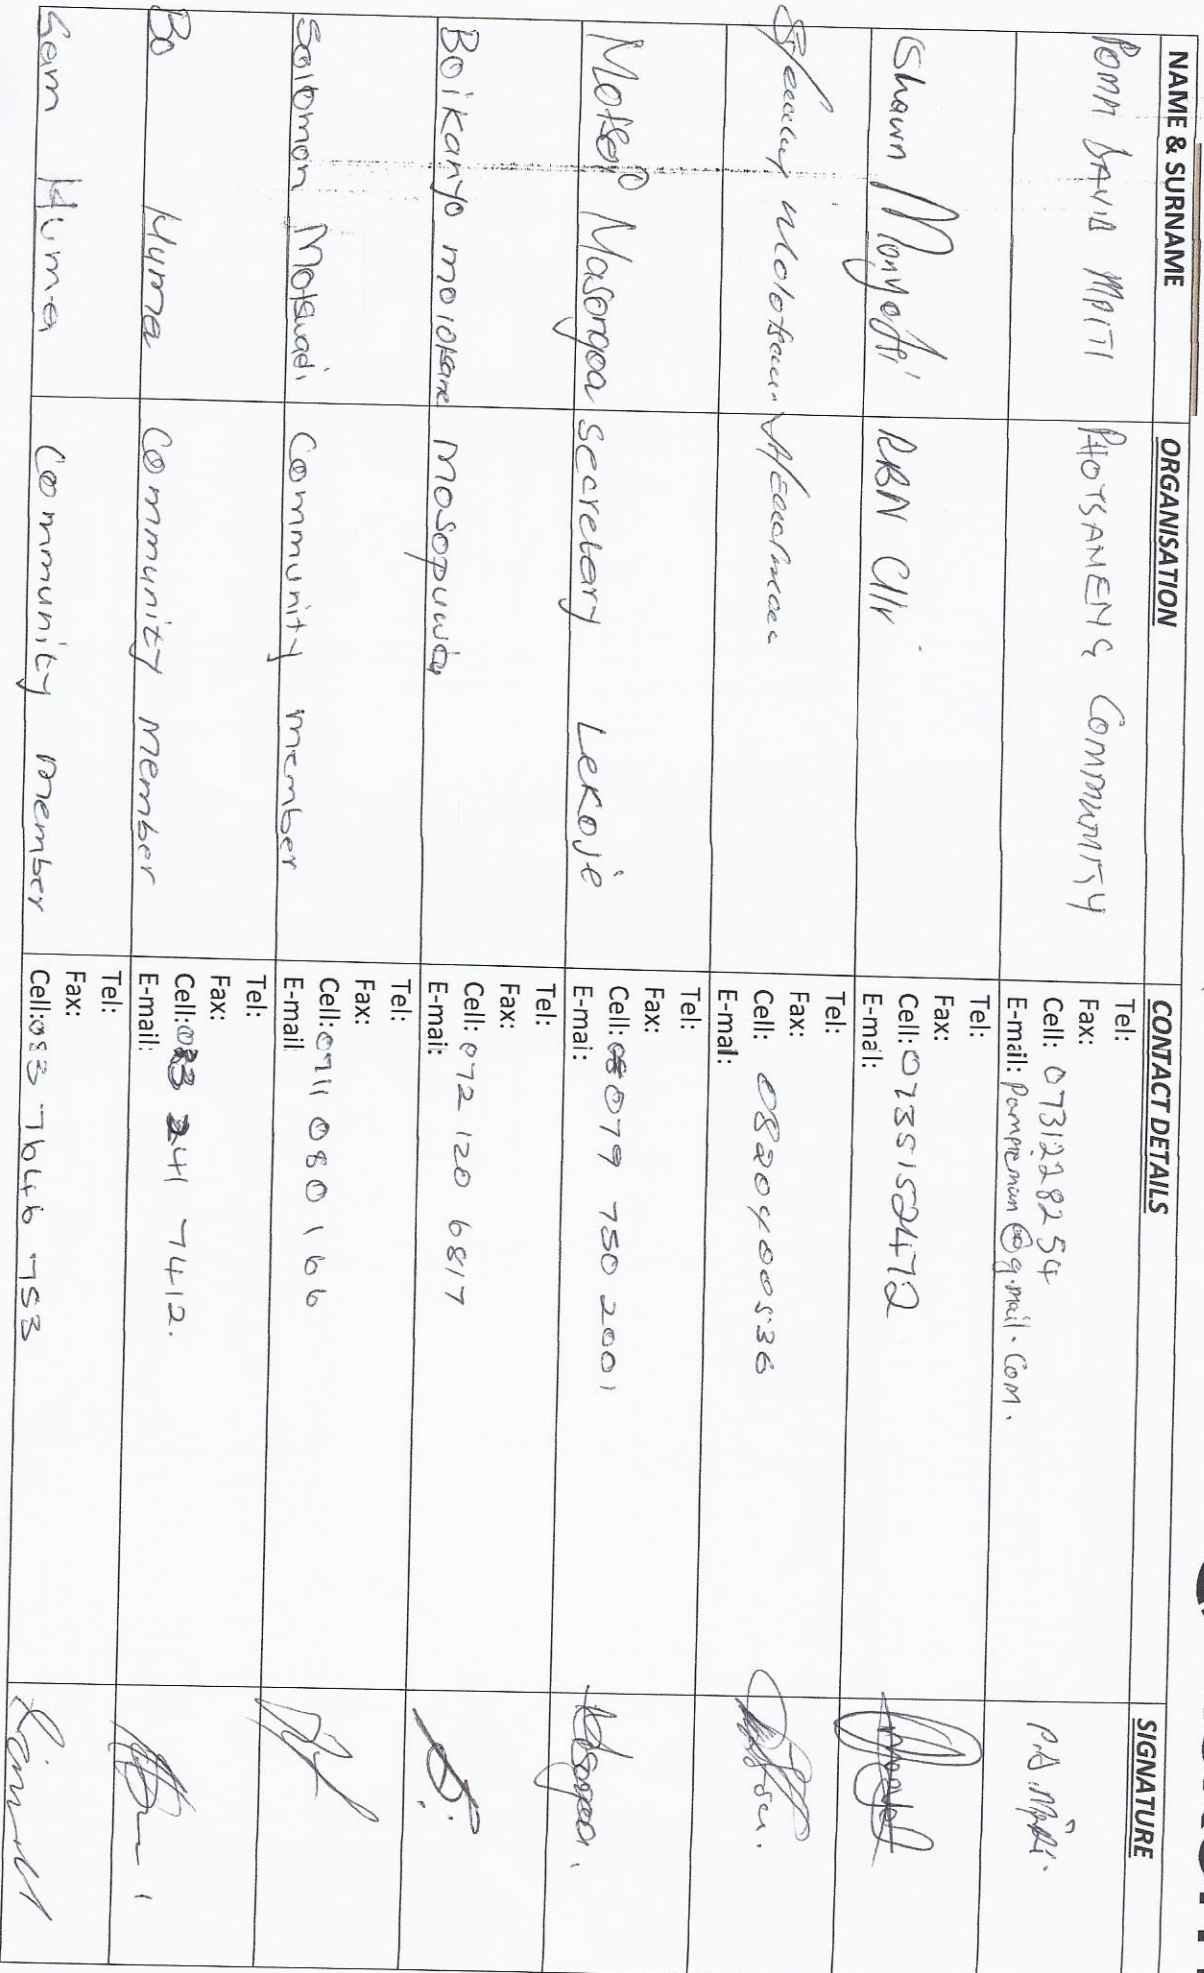 NAME & SURNAME
ORGANISATION
CONTACT DETAILS
SIGNATURE
DAVID MAITI
PHOTSANENG COMMUNITY
Tel:
Fax:
Cell: 0731228254
E-mail: Pompreman@gmail.com.
Shawn
RBN Cllr
Tel:
Fax:
Cell: 0735152472
E-mail:
Tel:
Fax:
Cell: 0820400536
E-mal:
Masongoa
Secretary Lekoje
Tel:
Fax:
Cell: 079 750 2001
E-mai:
Boikanyo molotsane
Tel:
Fax:
Cell: 072 120 6817
E-mai:
Solomon
Community member
Tel:
Fax:
Cell: 0711 080 166
E-mail
Bo Huma
Community Member
Tel:
Fax:
Cell: 083 241 7412.
E-mail:
Sam Huma
Community member
Tel:
Fax:
Cell: 083 7646 753